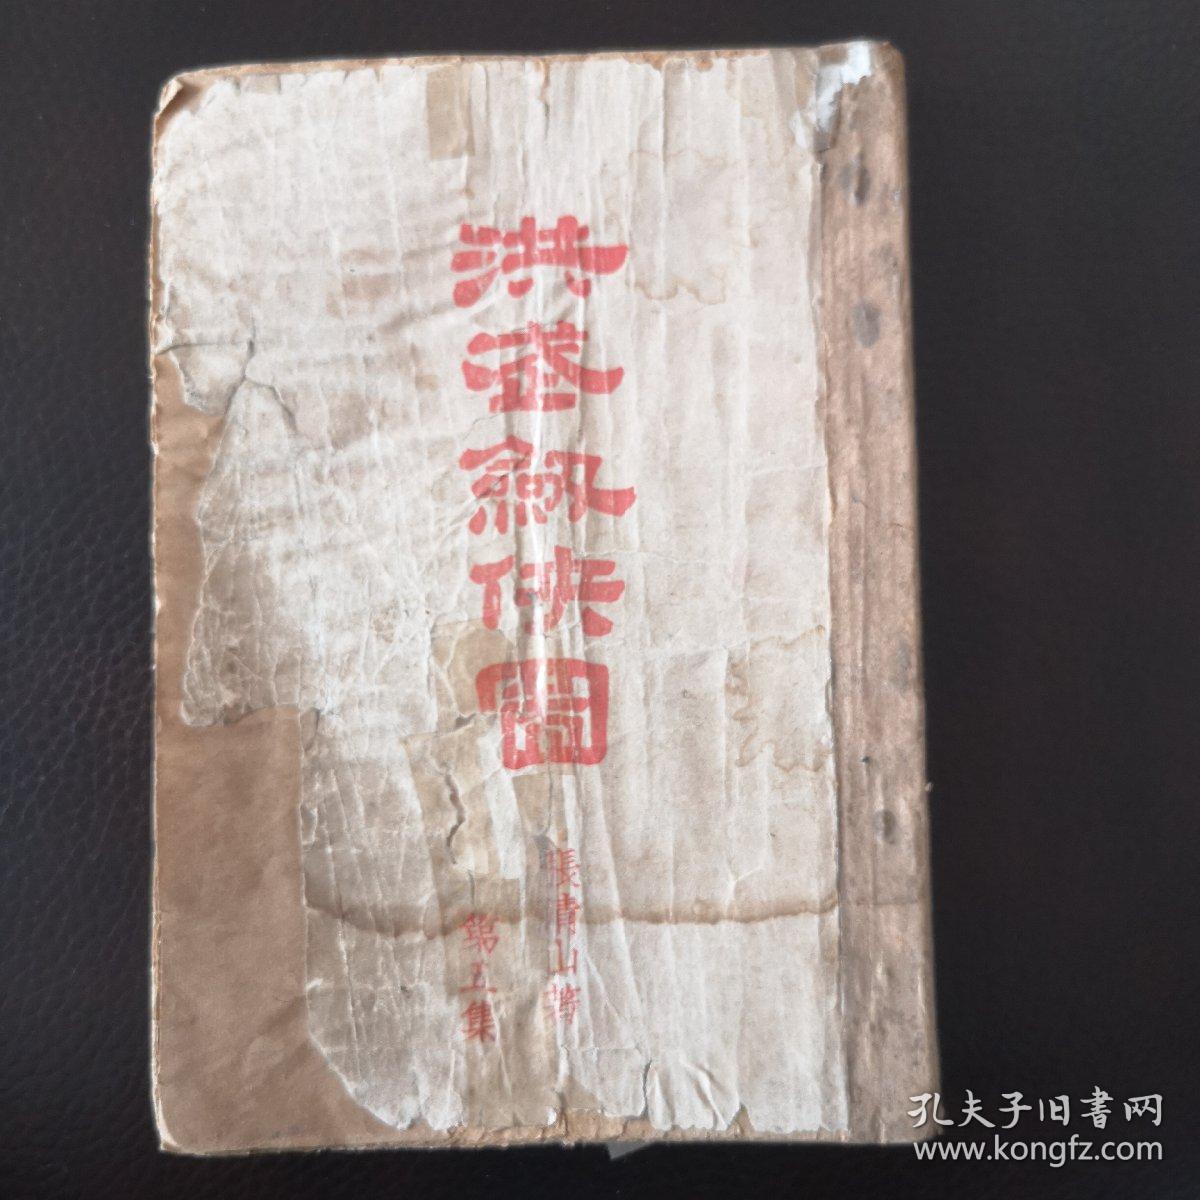 洪武劍俠圖
張青山著
第五集
孔夫子旧書网
www.kongfz.com